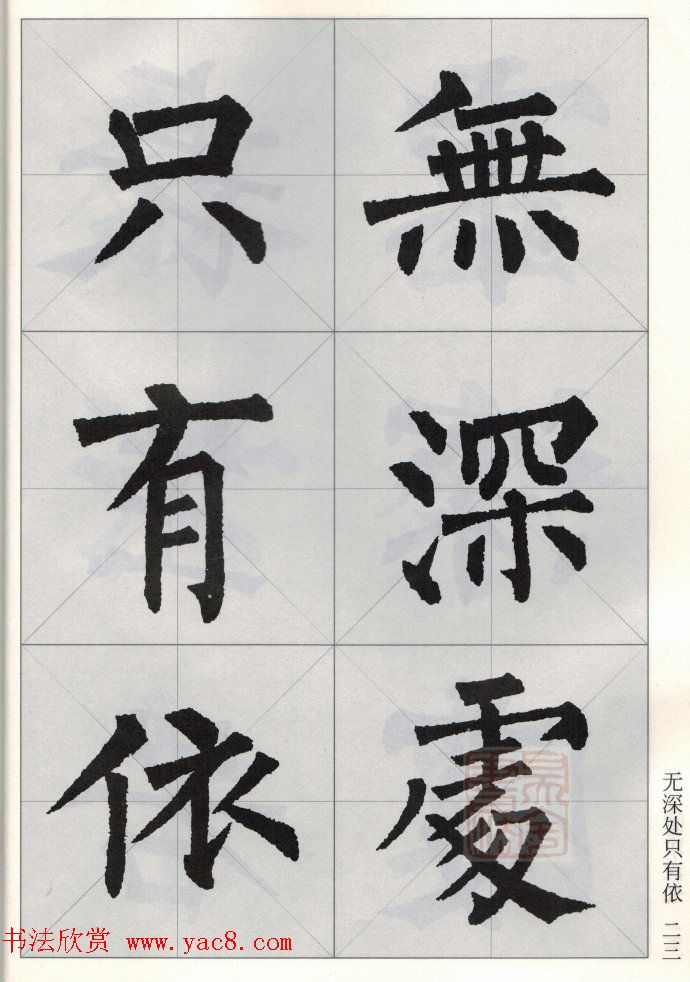 無深處
只有依
无深处只有依 二三
书法欣赏 www.yac8.com